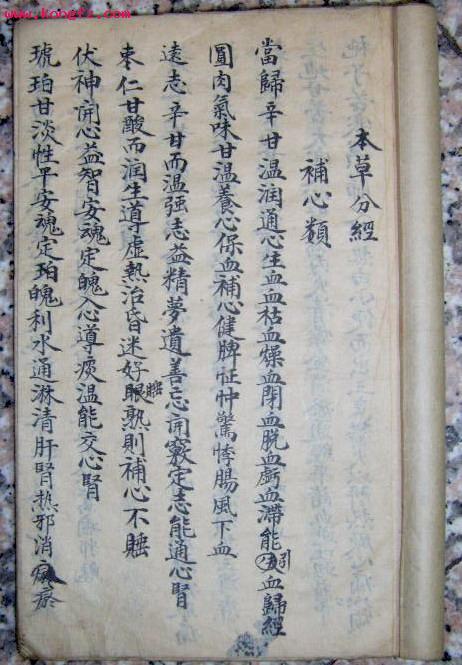 www.kongfz.com
本草分經
補心類
當歸辛甘溫润通心生血血枯血燥血閉血脱血虧血滯能引血歸經
圓肉氣味甘温養心保血補心健脾怔忡驚悸腸風下血
遠志辛甘而温强志益精夢遺善忘開竅定志能通心腎
枣仁甘酸而润生導虛熱治昏迷好眠熟則補心不睡
伏神開心益智安魂定魄入心導痰温能交心腎
琥珀甘淡性平安魂定珀魄利水通淋清肝腎热邪消瘀